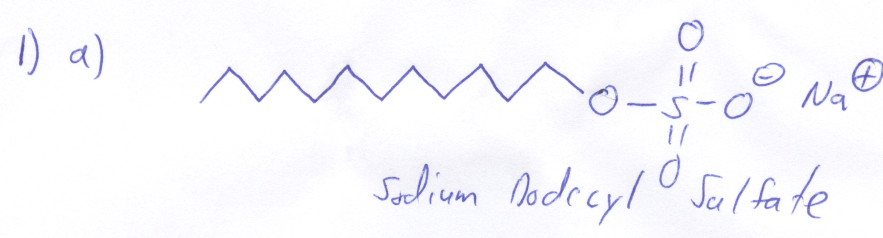 1) a)
O
O-S-O⊖ Na⊕
O
Sodium Dodecyl Sulfate